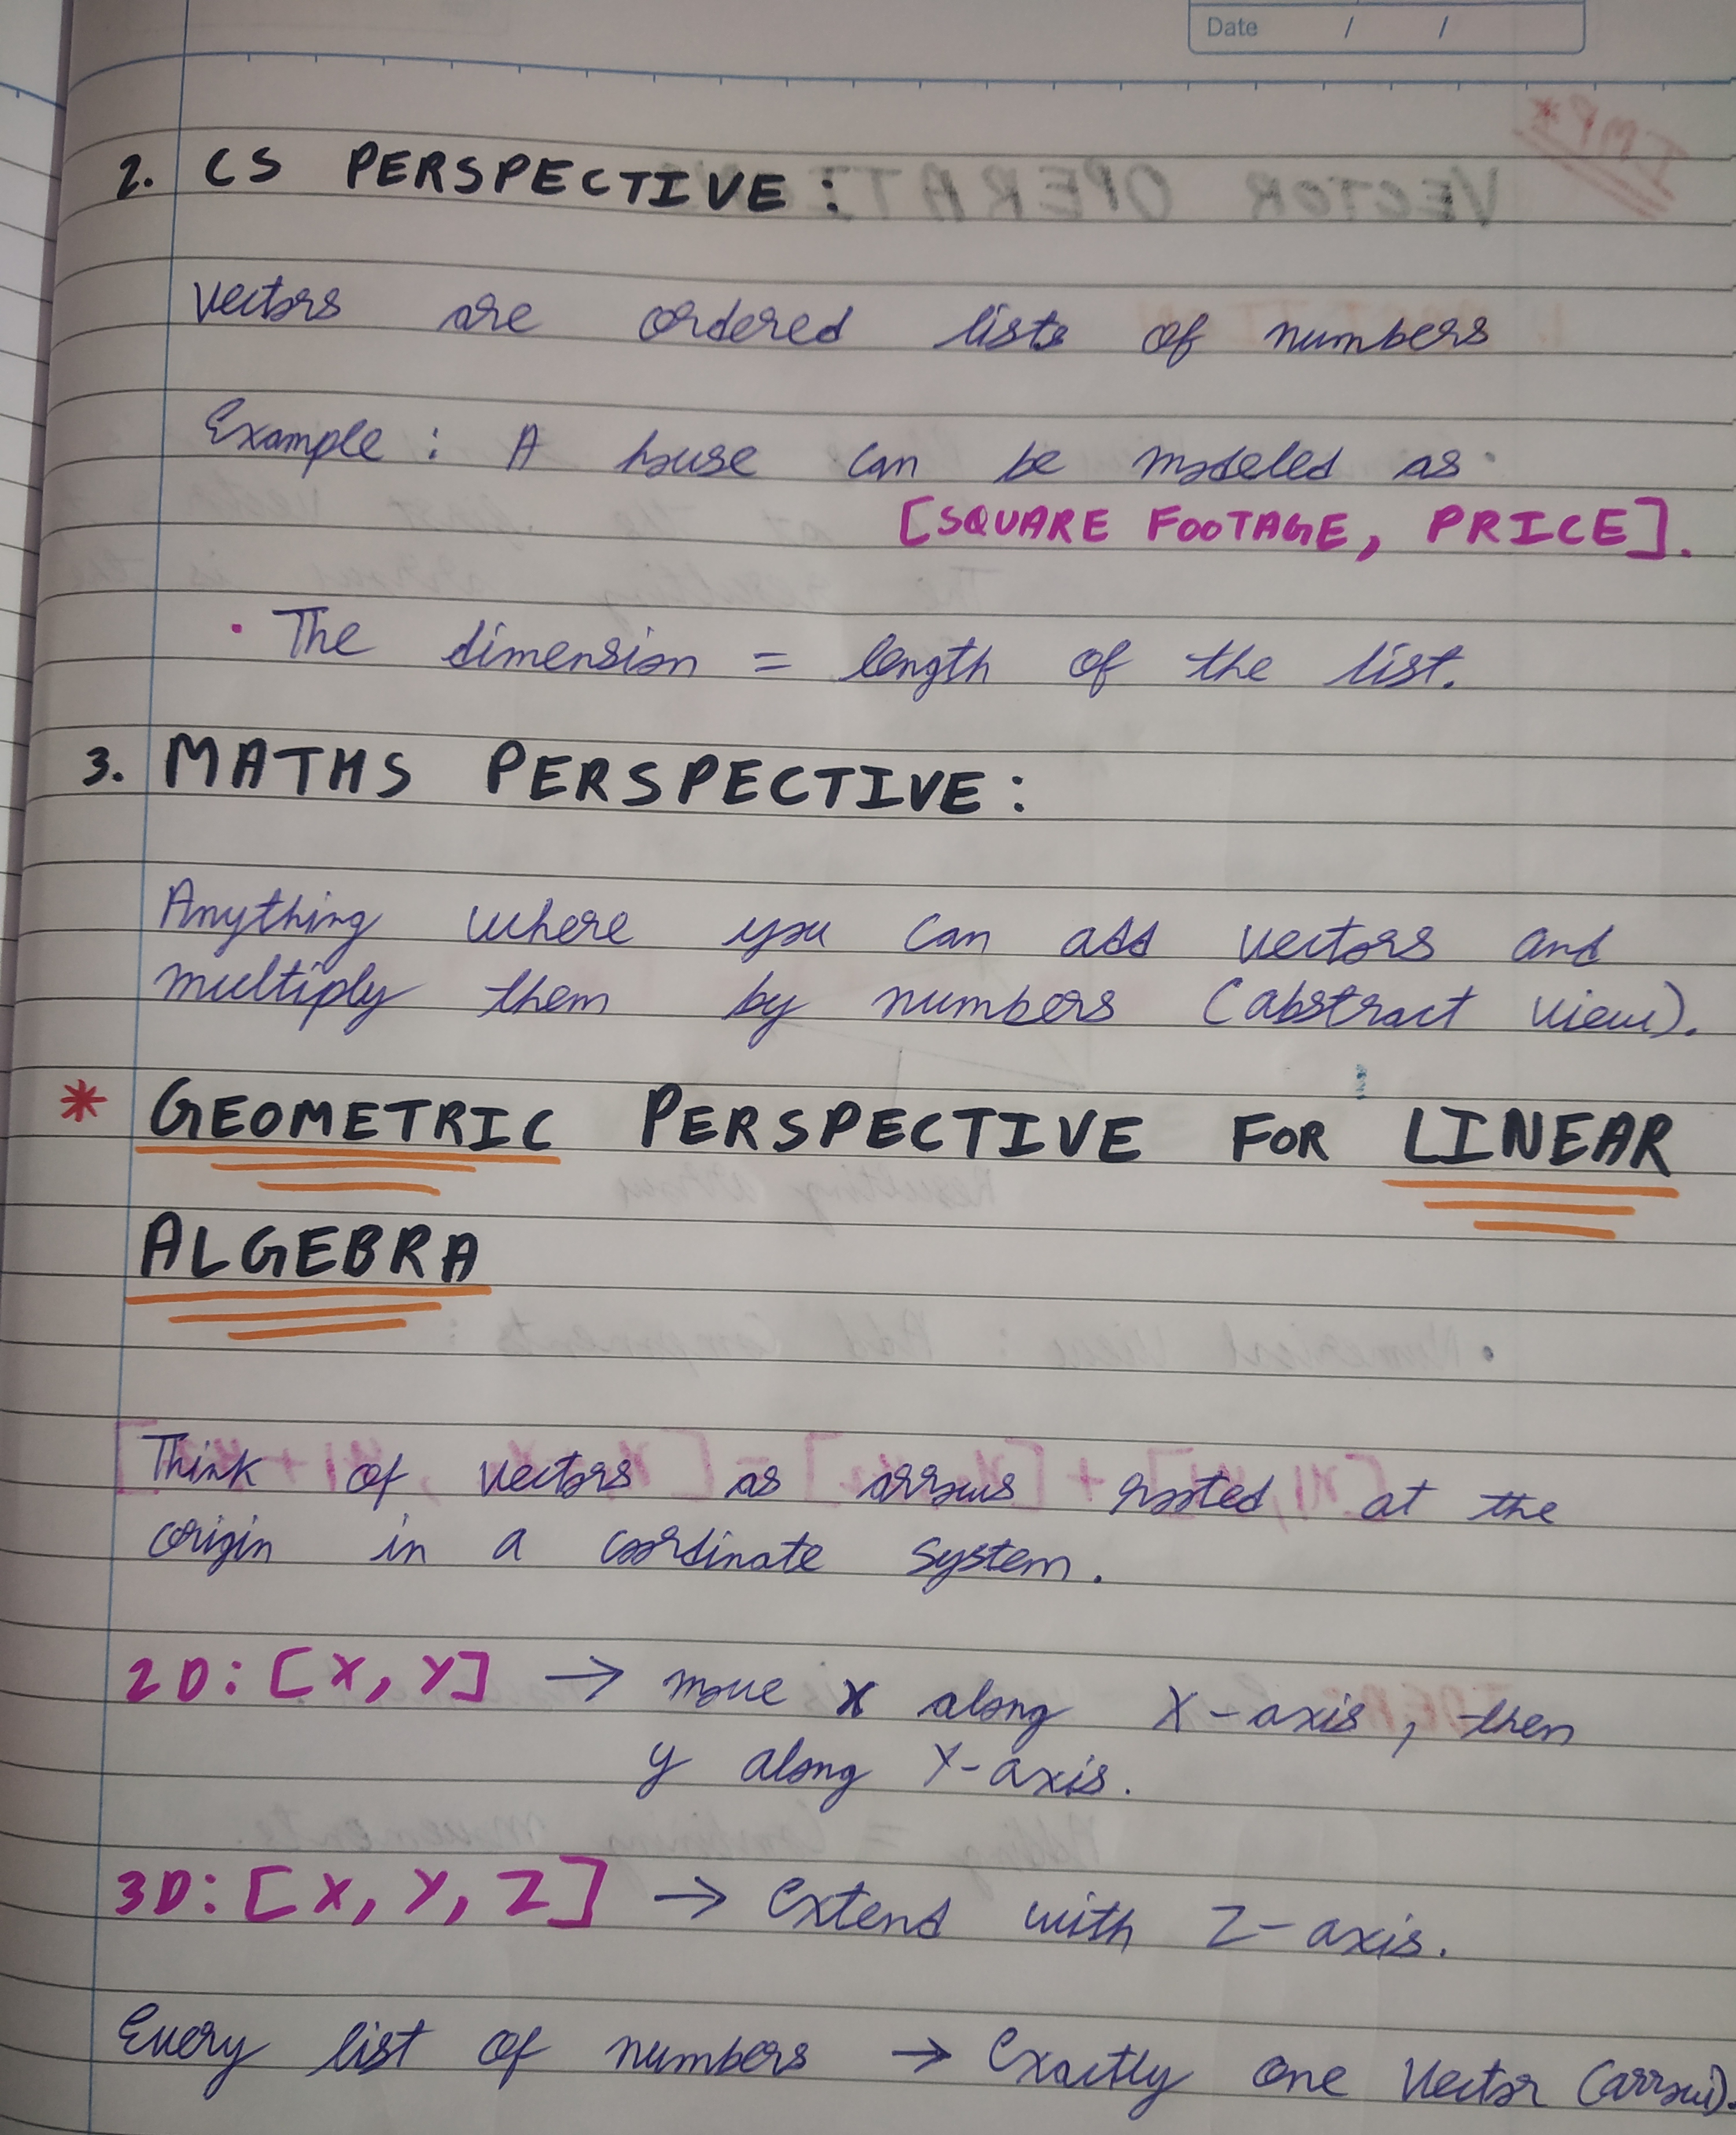 Date / /
2. CS PERSPECTIVE:
Vectors are ordered lists of numbers
Example: A house can be modeled as
[SQUARE FOOTAGE, PRICE].
• The dimension = length of the list.
3. MATHS PERSPECTIVE:
Anything where you can add vectors and
multiply them by numbers (abstract view).
* GEOMETRIC PERSPECTIVE FOR LINEAR
ALGEBRA
Think of vectors as arrows rooted at the
origin in a coordinate system.
2D: [X, Y] → move x along X-axis, then
y along Y-axis.
3D: [X, Y, Z] → Extend with Z-axis.
Every list of numbers → Exactly one Vector (arrow).